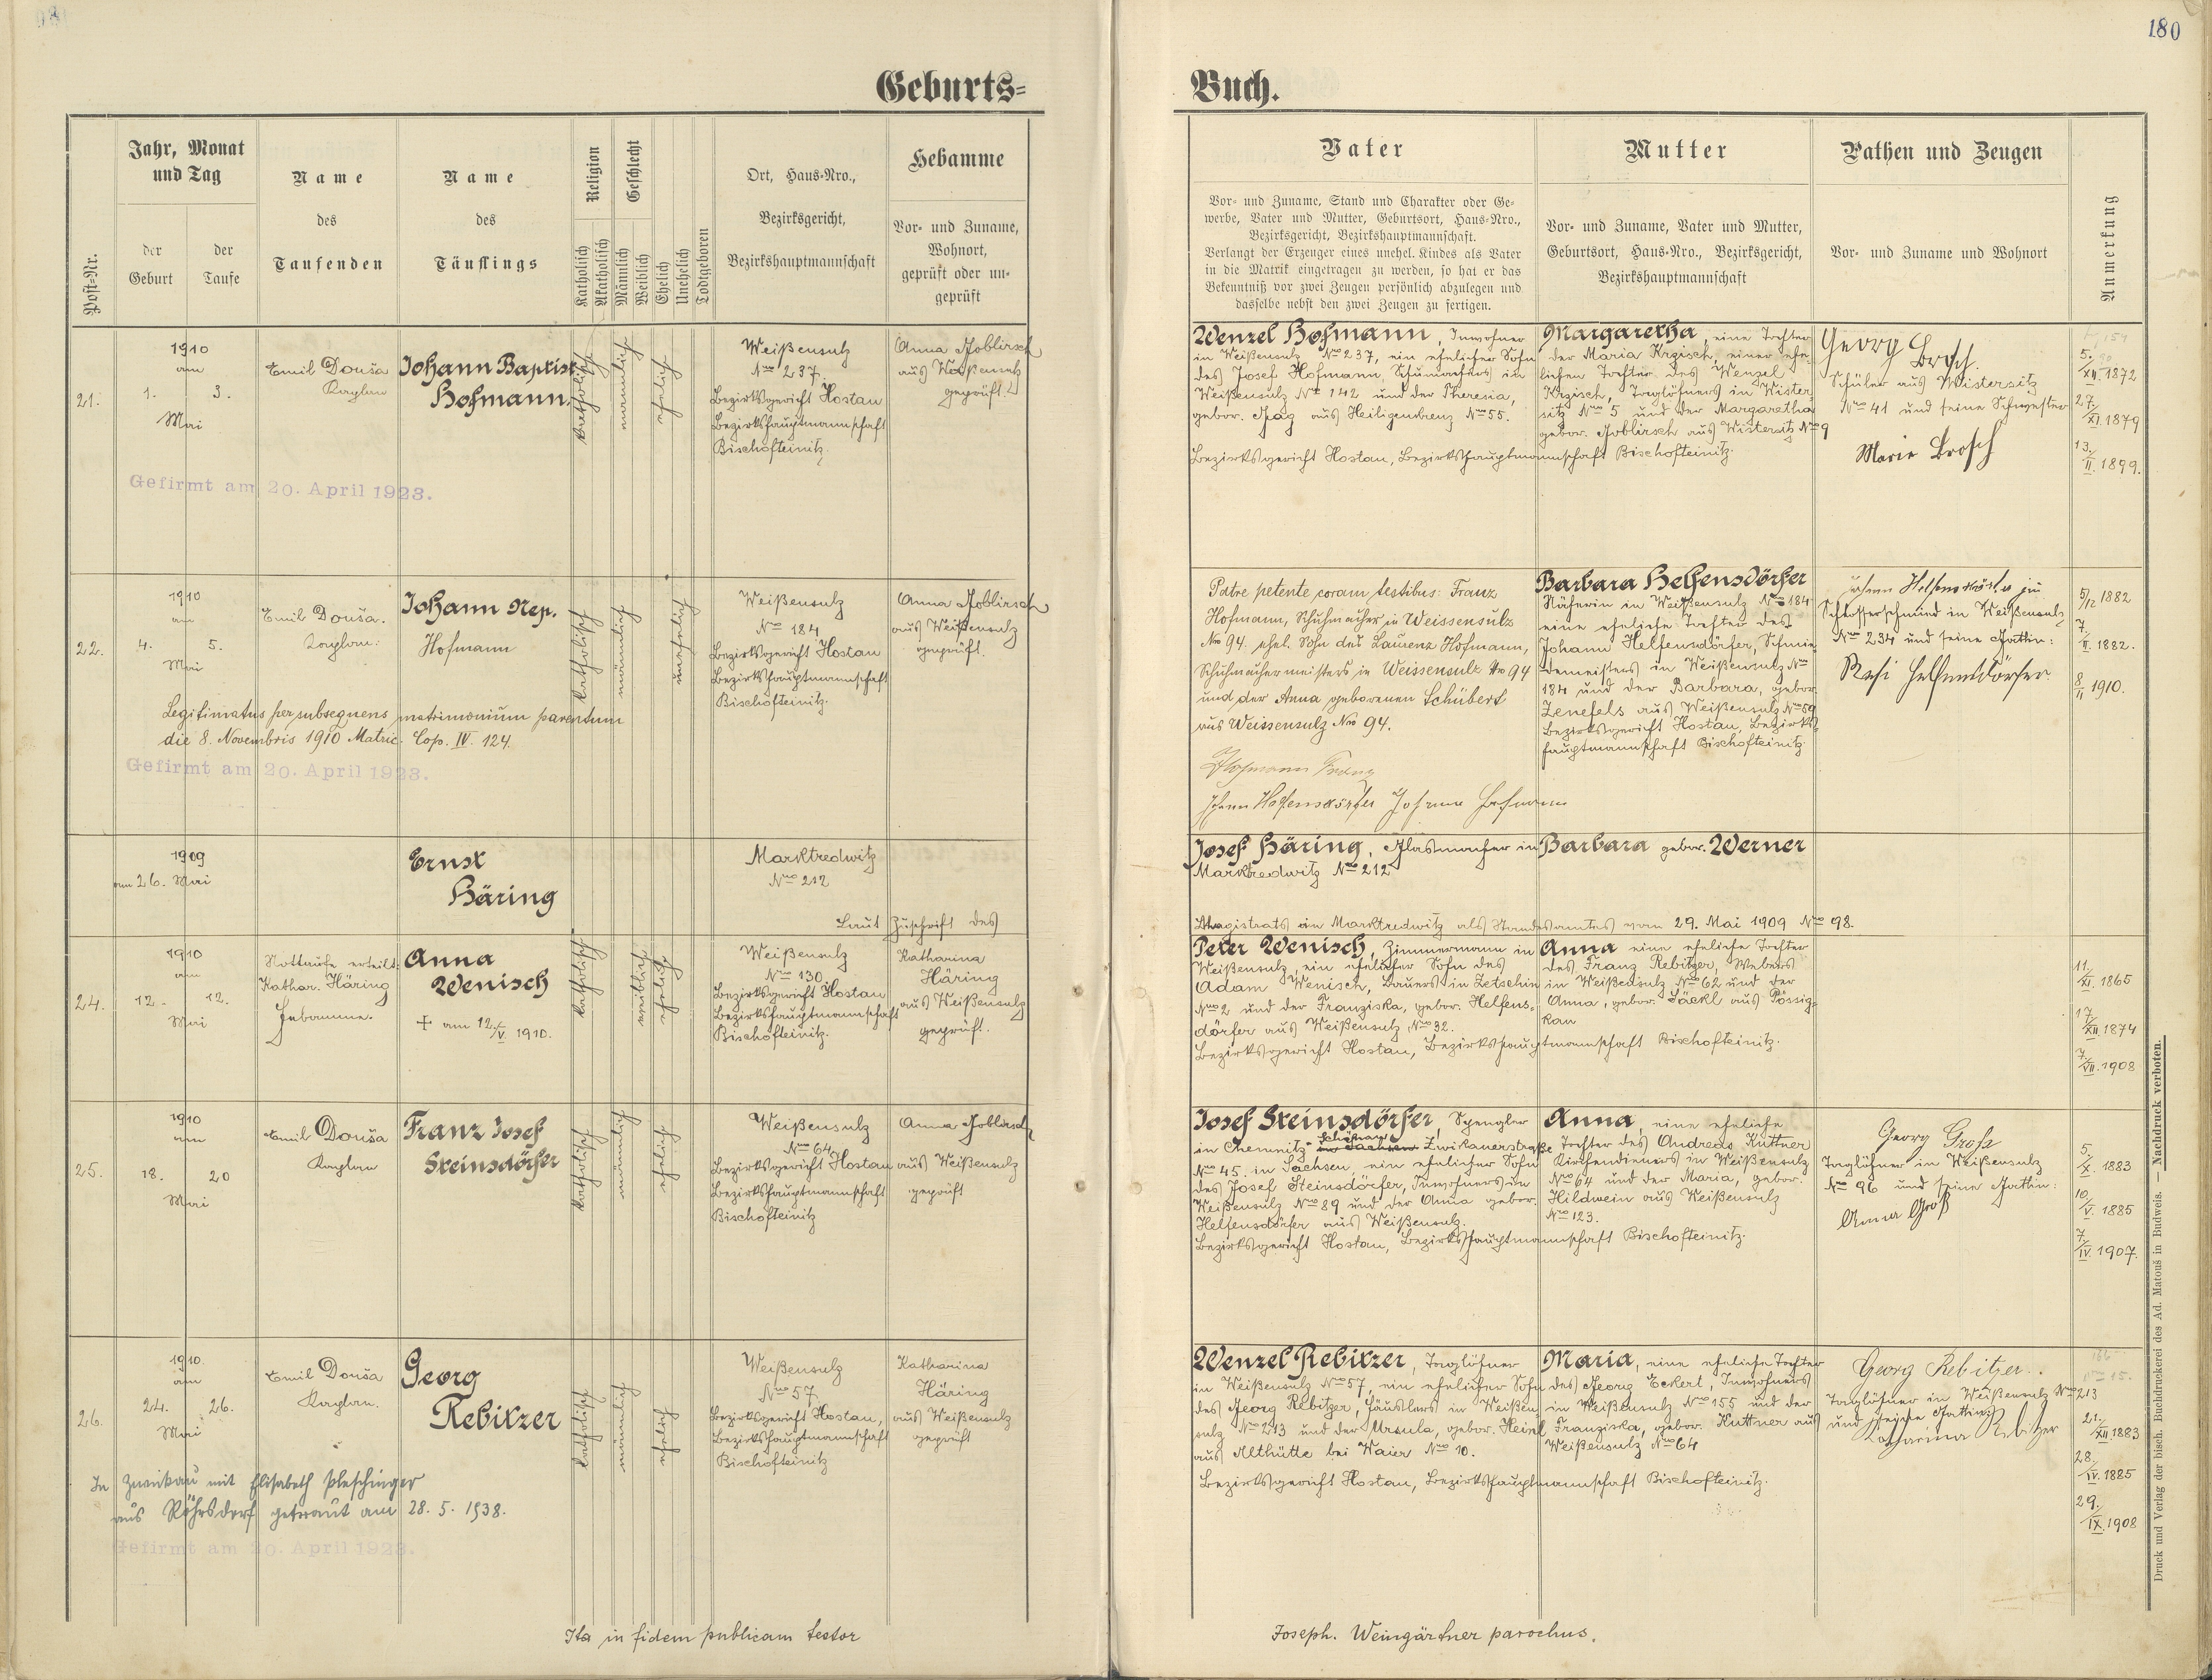 180
Geburts=
Buch.
Post-Nr.
Jahr, Monat
und Tag
der
Geburt
der
Taufe
Name
des
Taufenden
Name
des
Täuflings
Religion
Katholisch
Akatholisch
Geschlecht
Männlich
Weiblich
Ehelich
Unehelich
Todtgeboren
Ort, Haus-Nro.,
Bezirksgericht,
Bezirkshauptmannschaft
Hebamme
Vor- und Zuname,
Wohnort,
geprüft oder un-
geprüft
Vater
Vor- und Zuname, Stand und Charakter oder Ge-
werbe, Vater und Mutter, Geburtsort, Haus-Nro.,
Bezirksgericht, Bezirkshauptmannschaft.
Verlangt der Erzeuger eines unehel. Kindes als Vater
in die Matrik eingetragen zu werden, so hat er das
Bekenntniß vor zwei Zeugen persönlich abzulegen und
dasselbe nebst den zwei Zeugen zu fertigen.
Mutter
Vor- und Zuname, Vater und Mutter,
Geburtsort, Haus-Nro., Bezirksgericht,
Bezirkshauptmannschaft
Pathen und Zeugen
Vor- und Zuname und Wohnort
Anmerkung
21.
1910
am
1. 3.
Mai
Emil Douša
Kaplan
Johann Baptist
Hofmann.
katholisch
männlich
ehelich
Weißensulz
Nro 237.
Bezirksgericht Hostau
Bezirkshauptmannschaft
Bischofteinitz.
Anna Goblirsch
aus Weißensulz
geprüft.
Gefirmt am 20. April 1923.
Wenzel Hofmann, Inwohner
in Weißensulz Nro 237, ein ehelicher Sohn
des Josef Hofmann, Schumachers in
Weißensulz Nro 142 und der Theresia,
gebor. Gag aus Heiligenkreuz Nro 55.
Bezirksgericht Hostau, Bezirkshauptmannschaft Bischofteinitz.
Margaretha, eine Tochter
der Maria Krzisch, einer ehe-
lichen Tochter des Wenzel
Krzisch, Taglöhners in Wister-
sitz Nro 5 und der Margaretha
gebor. Goblirsch aus Wistersitz Nro 9
Georg Brosch.
Schüler aus Wistersitz
Nro 41 und seine Schwester
Marie Brosch
5./XII. 1872
27./XI. 1879
13./II. 1899.
22.
1910
am
4. 5.
Mai
Emil Douša.
Kaplan.
Johann Nep.
Hofmann
katholisch
männlich
unehelich
Weißensulz
Nro 184
Bezirksgericht Hostau
Bezirkshauptmannschaft
Bischofteinitz.
Anna Goblirsch
aus Weißensulz
geprüft.
Legitimatus per subsequens matrimonium parentum
die 8. Novembris 1910 Matric. Cop. IV. 124.
Gefirmt am 20. April 1923.
Patre petente coram testibus: Franz
Hofmann, Schuhmacher in Weissensulz
Nro 94. ehel. Sohn des Laurenz Hofmann,
Schuhmachermeisters in Weissensulz Nro 94
und der Anna geborenen Schubert
aus Weissensulz Nro 94.
Hofmann Franz
Johann Helfensdörfer Johann Hofmann
Barbara Helfensdörfer
Näherin in Weißensulz Nro 184
eine eheliche Tochter des
Johann Helfensdörfer, Schmie-
demeisters in Weißensulz Nro
184 und der Barbara, gebor.
Zenefels aus Weißensulz Nro 59
Bezirksgericht Hostau, Bezirks-
hauptmannschaft Bischofteinitz.
Johann Helfensdörfer jun
Schlosserschmied in Weißensulz
Nro 234 und seine Gattin:
Resi Helfensdörfer
5/12 1882
7./II. 1882.
8/11 1910.
1909
am 26. Mai
Ernst
Häring
Marktredwitz
Nro 212
Josef Häring, Glasmacher in
Marktredwitz Nro 212
Barbara gebor. Werner
Laut Zuschrift des Magistrats in Marktredwitz als Standesamtes vom 29. Mai 1909 Nro 98.
24.
1910
am
12. 12.
Mai
Nottaufe erteilt:
Kathar. Häring
Hebamme.
Anna
Wenisch
+ am 12./V. 1910.
katholisch
weiblich
ehelich
Weißensulz
Nro 130.
Bezirksgericht Hostau
Bezirkshauptmannschaft
Bischofteinitz.
Katharina
Häring
aus Weißensulz
geprüft.
Peter Wenisch, Zimmermann in
Weißensulz, ein ehelicher Sohn des
Adam Wenisch, Bauers in Zetschin
Nro 2 und der Franziska, gebor. Helfens-
dörfer aus Weißensulz Nro 32.
Bezirksgericht Hostau, Bezirkshauptmannschaft Bischofteinitz.
Anna eine eheliche Tochter
des Franz Rebitzer, Webers
in Weißensulz Nro 62 und der
Anna, gebor. Säckl aus Pössig-
kau
11./XI. 1865
17./XII. 1874
7./VII. 1908
25.
1910
am
18. 20
Mai
Emil Douša
Kaplan
Franz Josef
Steinsdörfer
katholisch
männlich
ehelich
Weißensulz
Nro 64
Bezirksgericht Hostau
Bezirkshauptmannschaft
Bischofteinitz
Anna Goblirsch
aus Weißensulz
geprüft
Josef Steinsdörfer, Spengler
in Chemnitz-Schönau Zwikauerstraße
Nro 45. in Sachsen, ein ehelicher Sohn
des Josef Steinsdörfer, Inwohners in
Weißensulz Nro 89 und der Anna gebor.
Helfensdörfer aus Weißensulz.
Bezirksgericht Hostau, Bezirkshauptmannschaft Bischofteinitz.
Anna, eine eheliche
Tochter des Andreas Kuttner
Kirchendieners in Weißensulz
Nro 64 und der Maria, gebor.
Hildwein aus Weißensulz
Nro 123.
Georg Groß
Taglöhner in Weißensulz
Nro 96 und seine Gattin:
Anna Groß
5./X. 1883
10./V. 1885
7./IV. 1907.
26.
1910.
am
24. 26.
Mai
Emil Douša
Kaplan.
Georg
Rebitzer
katholisch
männlich
ehelich
Weißensulz
Nro 57
Bezirksgericht Hostau,
Bezirkshauptmannschaft
Bischofteinitz
Katharina
Häring
aus Weißensulz
geprüft
In Zwickau mit Elisabeth Pleschinger
aus Röhrsdorf getraut am 28. 5. 1938.
Gefirmt am 20. April 1923.
Wenzel Rebitzer, Taglöhner
in Weißensulz Nro 57, ein ehelicher Sohn
des Georg Rebitzer, Häuslers in Weißen-
sulz Nro 213 und der Ursula, gebor. Heinl
aus Althütte bei Waier Nro 10.
Bezirksgericht Hostau, Bezirkshauptmannschaft Bischofteinitz.
Maria, eine eheliche Tochter
des Georg Eckert, Inwohners
in Weißensulz Nro 155 und der
Franziska, gebor. Kuttner aus
Weißensulz Nro 64
Georg Rebitzer.
Taglöhner in Weißensulz Nro 213
und seine Gattin:
Katharina Rebitzer
21./XII. 1883
28./IV. 1885
29./IX. 1908
Ita in fidem publicam testor
Joseph. Weingärtner parochus.
Druck und Verlag der bisch. Buchdruckerei des Ad. Matouš in Budweis. — Nachdruck verboten.